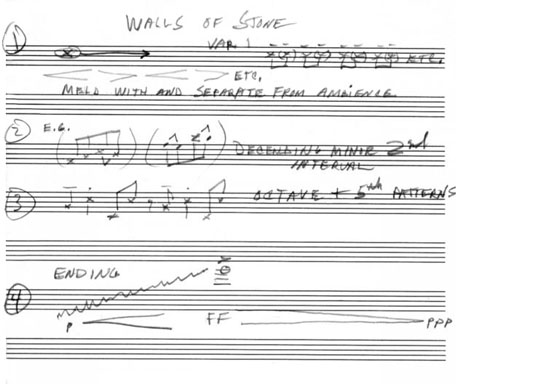 WALLS OF STONE
1 VAR. 1 ETC.
ETC.
MELD WITH AND SEPARATE FROM AMBIENCE
2 E.G. ( ) ( ) DECENDING MINIR 2nd
INTERVAL
3 OCTAVE + 5th PATTERNS
ENDING
4
P FF PPP